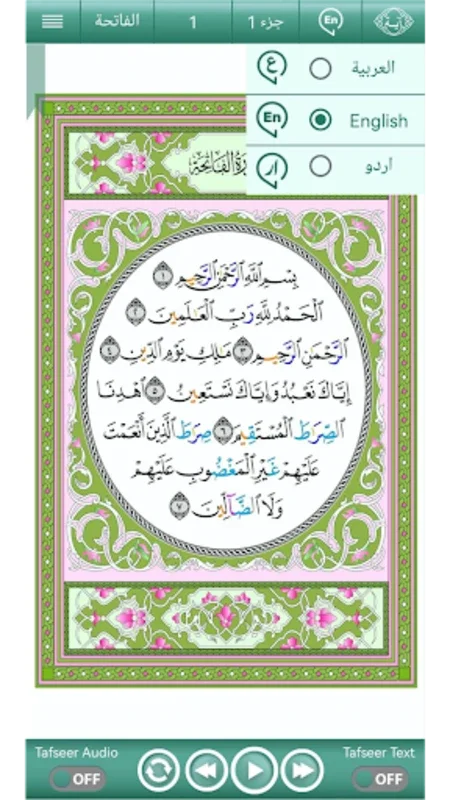 الفاتحة
1
جزء 1
En
آية
ع العربية
En English
ار اردو
سُورَةُ الْفَاتِحَةِ
بِسْمِ اللَّهِ الرَّحْمَٰنِ الرَّحِيمِ ١
الْحَمْدُ لِلَّهِ رَبِّ الْعَالَمِينَ ٢
الرَّحْمَٰنِ الرَّحِيمِ ٣ مَالِكِ يَوْمِ الدِّينِ ٤
إِيَّاكَ نَعْبُدُ وَإِيَّاكَ نَسْتَعِينُ ٥ اهْدِنَا
الصِّرَاطَ الْمُسْتَقِيمَ ٦ صِرَاطَ الَّذِينَ أَنْعَمْتَ
عَلَيْهِمْ غَيْرِ الْمَغْضُوبِ عَلَيْهِمْ
وَلَا الضَّالِّينَ ٧
Tafseer Audio
OFF
Tafseer Text
OFF